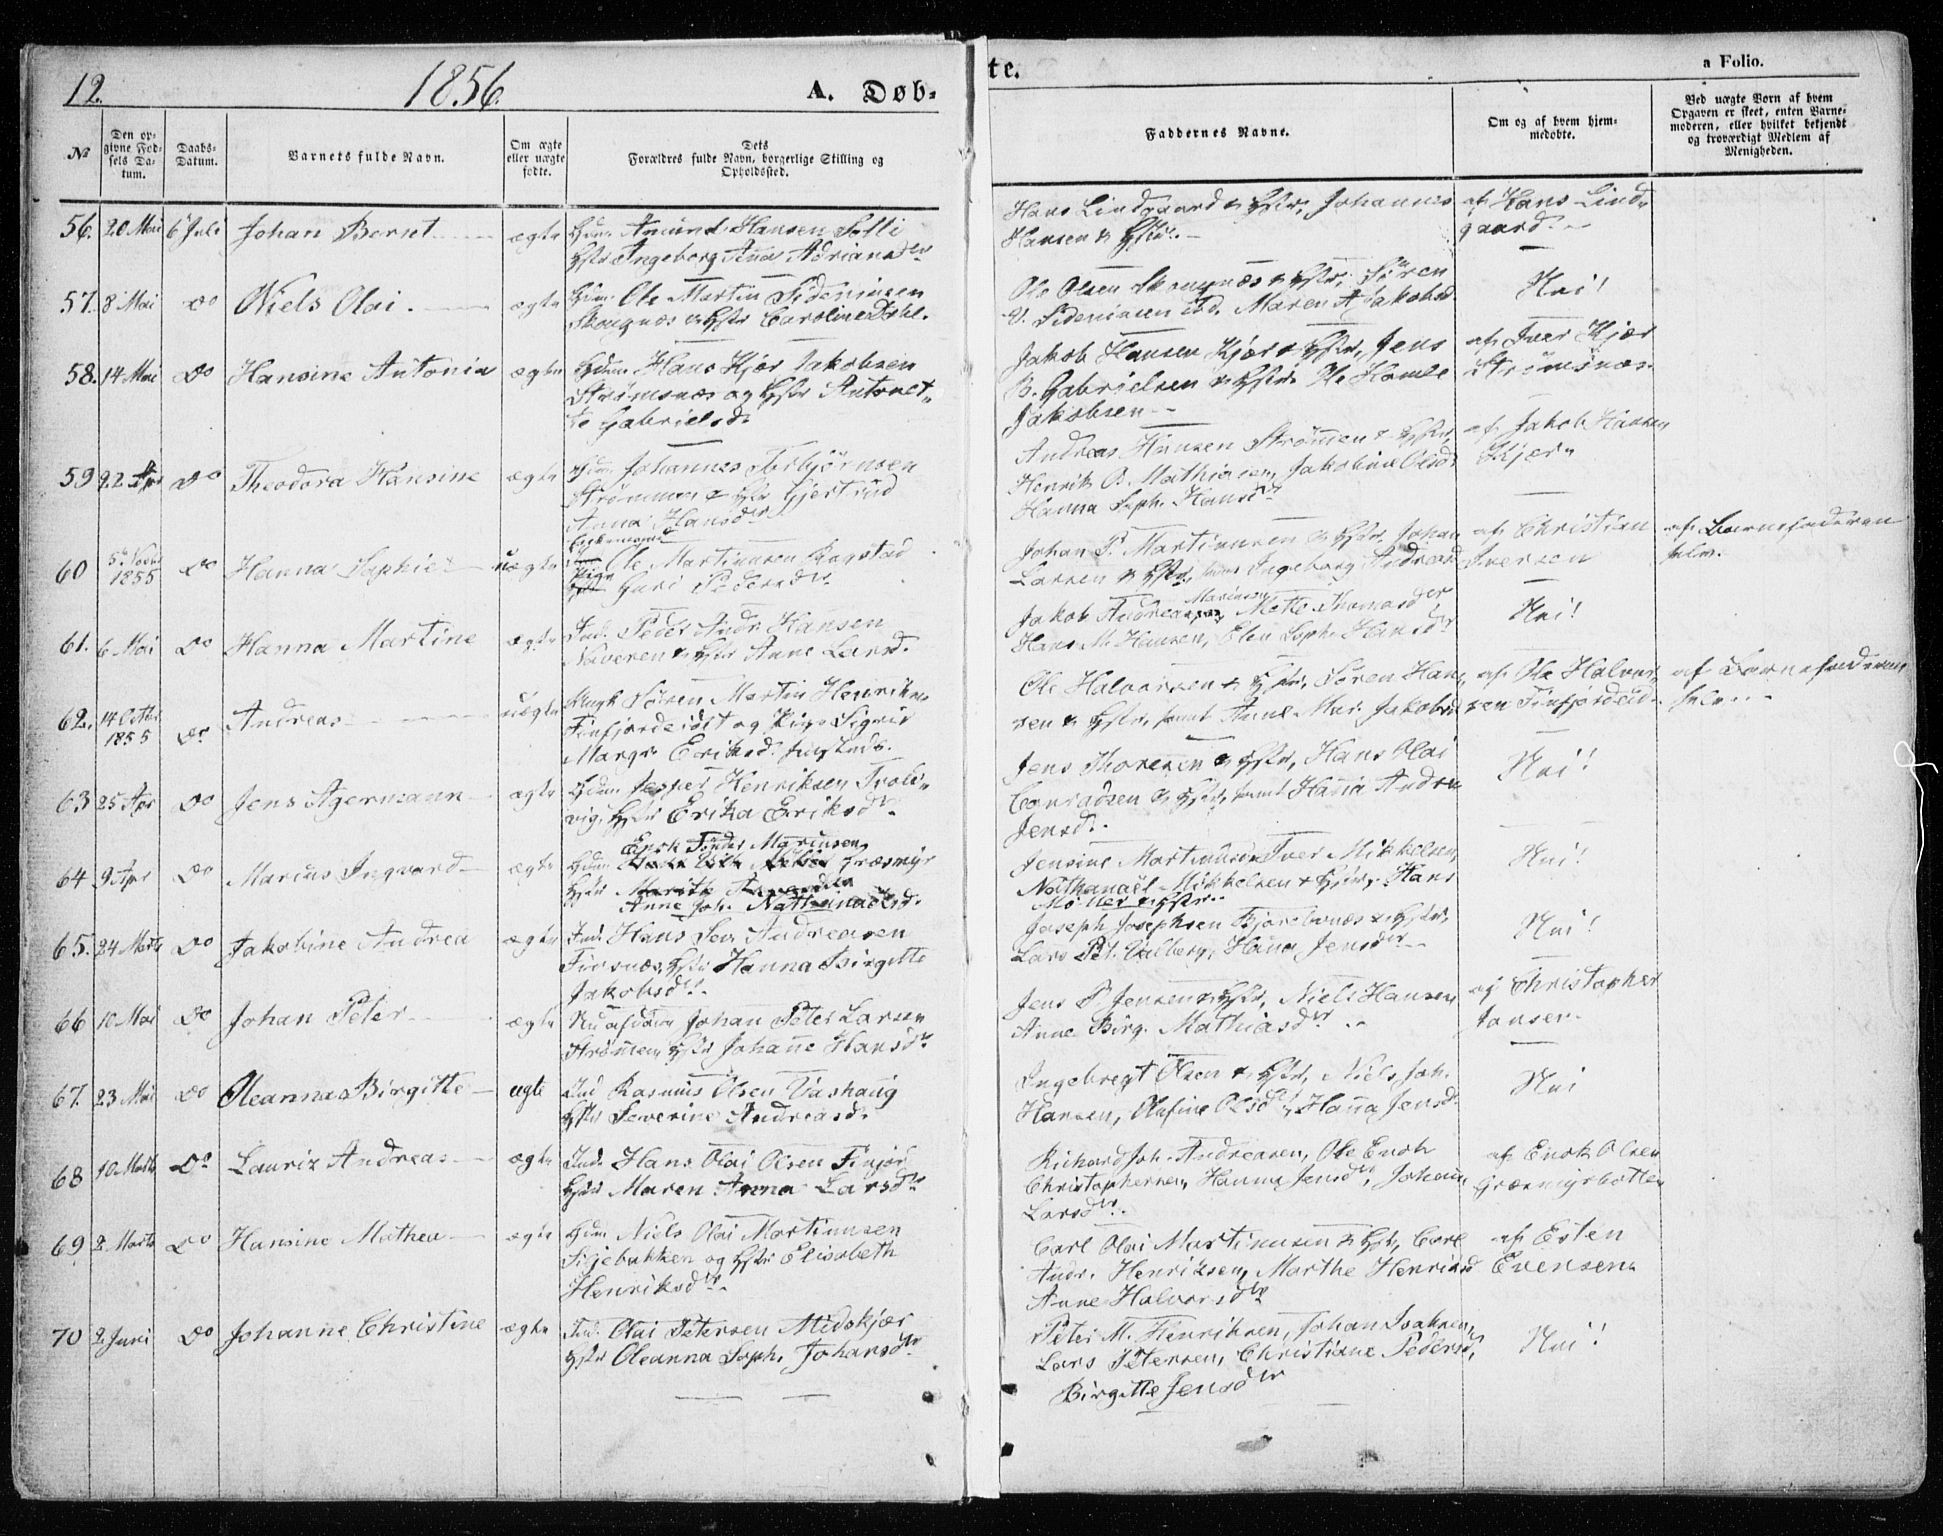 12.
1856.
A. Døb-
te.
a Folio.
№
Den op-
givne Fød-
sels Da-
tum.
Daabs-
Datum.
Barnets fulde Navn.
Om ægte
eller uægte
fødte.
Dets
Forældres fulde Navn, borgerlige Stilling og
Opholdssted.
Faddernes Navne.
Om og af hvem hjem-
medøbte.
Ved uægte Born af hvem
Opgaven er skeet, enten Barne-
moderen, eller hvilket bekjendt
og troværdigt Medlem af
Menigheden.
56. 20 Mai 6 Juli Johan Bernt ægte Hdm. Amund Hansen Solli
Hstr Ingeborg Ana Adriansdr
Hans Lindgaard & Hstr, Johannes
Hansen & Hstr.
af Hans Lind-
gaard.
57. 8 Mai Do Niels Olai. ægte Hdm. Ole Martin Sideniusen
Skognæs & Hstr Caroline Dahl.
Ole Olsen Skognæs & Hstr, Sören
Sideniusen ibd. Maren A Jakobsd.
Nei!
58. 14 Mai Do Hansine Antonia ægte Hdm. Hans Kjær Jakobsen
Strømsnæs og Hstr Antonet-
te Gabrielsd.
Jakob Hansen Kjær & Hstr, Jens
B. Gabrielsen & Hstr. Ole
Jakobsen
af Iver Kjær
Strømsnæs.
59 22 Apr Do Theodora Hansine ægte Hdm. Johannes Torbjörnsen
Strömmen & Hstr Gjertrud
Anna Hansdr
Andreas Hansen Strømmen & Hstr,
Henrik B. Mathiasen, Jakobine Olsdr
Hanna Soph. Hansdr
af Jakob Hansen
Kjær
60 5te Novbr
1855 Do Hanna Sophie uægte
Ole Martinusen
Pige
Guri Pedersdr
Johan P. Martinusen & Hstr, Johan
Larsen & Hstr, samt Ingeborg Andreasd
af Christian
Iversen
af Barnefaderen
selv.
61. 6 Mai Do Hanna Martine ægte Ind. Peder Andr. Hansen
Naveren & Hstr Anne Larsd.
Jakob Andreas Mariusen, Mette Thomasdr
Hans M. Hansen, Elen Soph. Hansdr
Nei!
62. 14 Octbr
1855 Do Andreas uægte Ungk Sören Martin Henriksen
Finfjordeidet og Pige Sigrid
Margr. Eriksd.
Ole Halvorsen & Hstr, Sören Han-
sen & Hstr, samt Anne Mar. Jakobsd
af Ole Halvor-
sen Finfjordeid.
af Barnefaderen
selv.
63 25 Apr Do Jens Agermann ægte Hdm. Jesper Henriksen Trold-
vig, Hstr Erika Eriksdr.
Jens Thoresen & Hstr, Hans Olai
Conradsen & Hstr, samt Hana Andrea
Jensd.
Nei!
64 9 Apr Do Marius Ingvard ægte Enok Peder Mariusen
Hdm. Græsmyr
Hstr
Anne Joh. Nathanaelsd.
Jensine Martinusdr Iver Mikkelsen,
Nathanaël Mikkelsen & Hstr, Hans
Möller & Hstr.
Nei!
65. 24 Marts Do Jakobine Andrea ægte Ind. Hans Sev. Andreasen
Finsnæs, Hstr Hanna Birgitte
Jakobsdr.
Joseph Josephsen Bjorelvnæs & Hstr,
Lars Pet. Valberg, Hana Jensdr
Nei!
66 10 Mai Do Johan Peter ægte Nu afdöde Johan Peter Larsen
Strømmen, Hstr Johane Hansdr
Jens P Jensen & Hstr, Niels Hansen,
Anne Birg. Mathiasdr.
af Christopher
Jansen
67. 23 Mai Do Oleanna Birgitte ægte Ind Rasmus Olsen Vashaug
Hstr Severine Andreasd.
Ingebregt Olsen & Hstr, Niels Joh.
Hansen, Olufine Olsdr, Hana Jensd.
Nei
68 10 Marts Do Lauriz Andreas ægte Ind. Hans Olai Olsen Finfjor
Hstr Maren Anna Larsdr
Richard Joh. Andreasen, Ole Enok
Christophersen, Hanna Jensdr, Johan
Larsdr.
af Enok Olsen
Græsmyrbotten
69 8 Marts Do Hansine Mathea ægte Hdm Niels Olai Martinusen
Siljebakken og Hstr Elisabeth
Henriksdr.
Carl Olai Martinusen & Hstr, Carl
Andr. Henriksen, Marthe Henriksd
Anne Halvorsdr
af Esten
Evensen.
70 2 Juni Do Johanne Christine ægte Ind. Olai Petersen Midskjær
Hstr Oleanna Soph. Johansdr
Peter M. Henriksen, Johan Isaksen,
Lars Petersen, Christiane Pedersd,
Birgitte Jensdr
Nei!